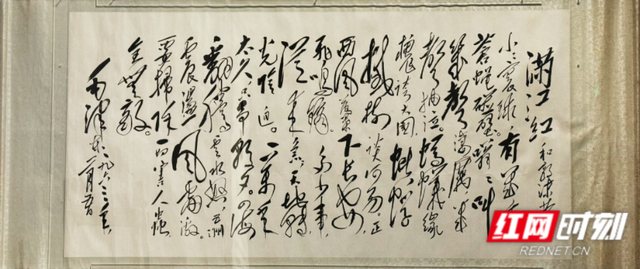 满江红 和郭沫若
小小寰球，有几个
苍蝇碰壁。嗡嗡叫
几声凄厉，几
声抽泣。蚂蚁缘
槐夸大国，蚍蜉
撼树谈何易。正
西风落叶下长安，
飞鸣镝。多少事，
从来急；天地转，
光阴迫。一万年
太久，只争朝夕。四海
翻腾云水怒，五洲
震荡风雷激。
要扫除一切害人虫，
全无敌。
毛泽东 一九六三年
一月九日
红网时刻
REDNET.CN